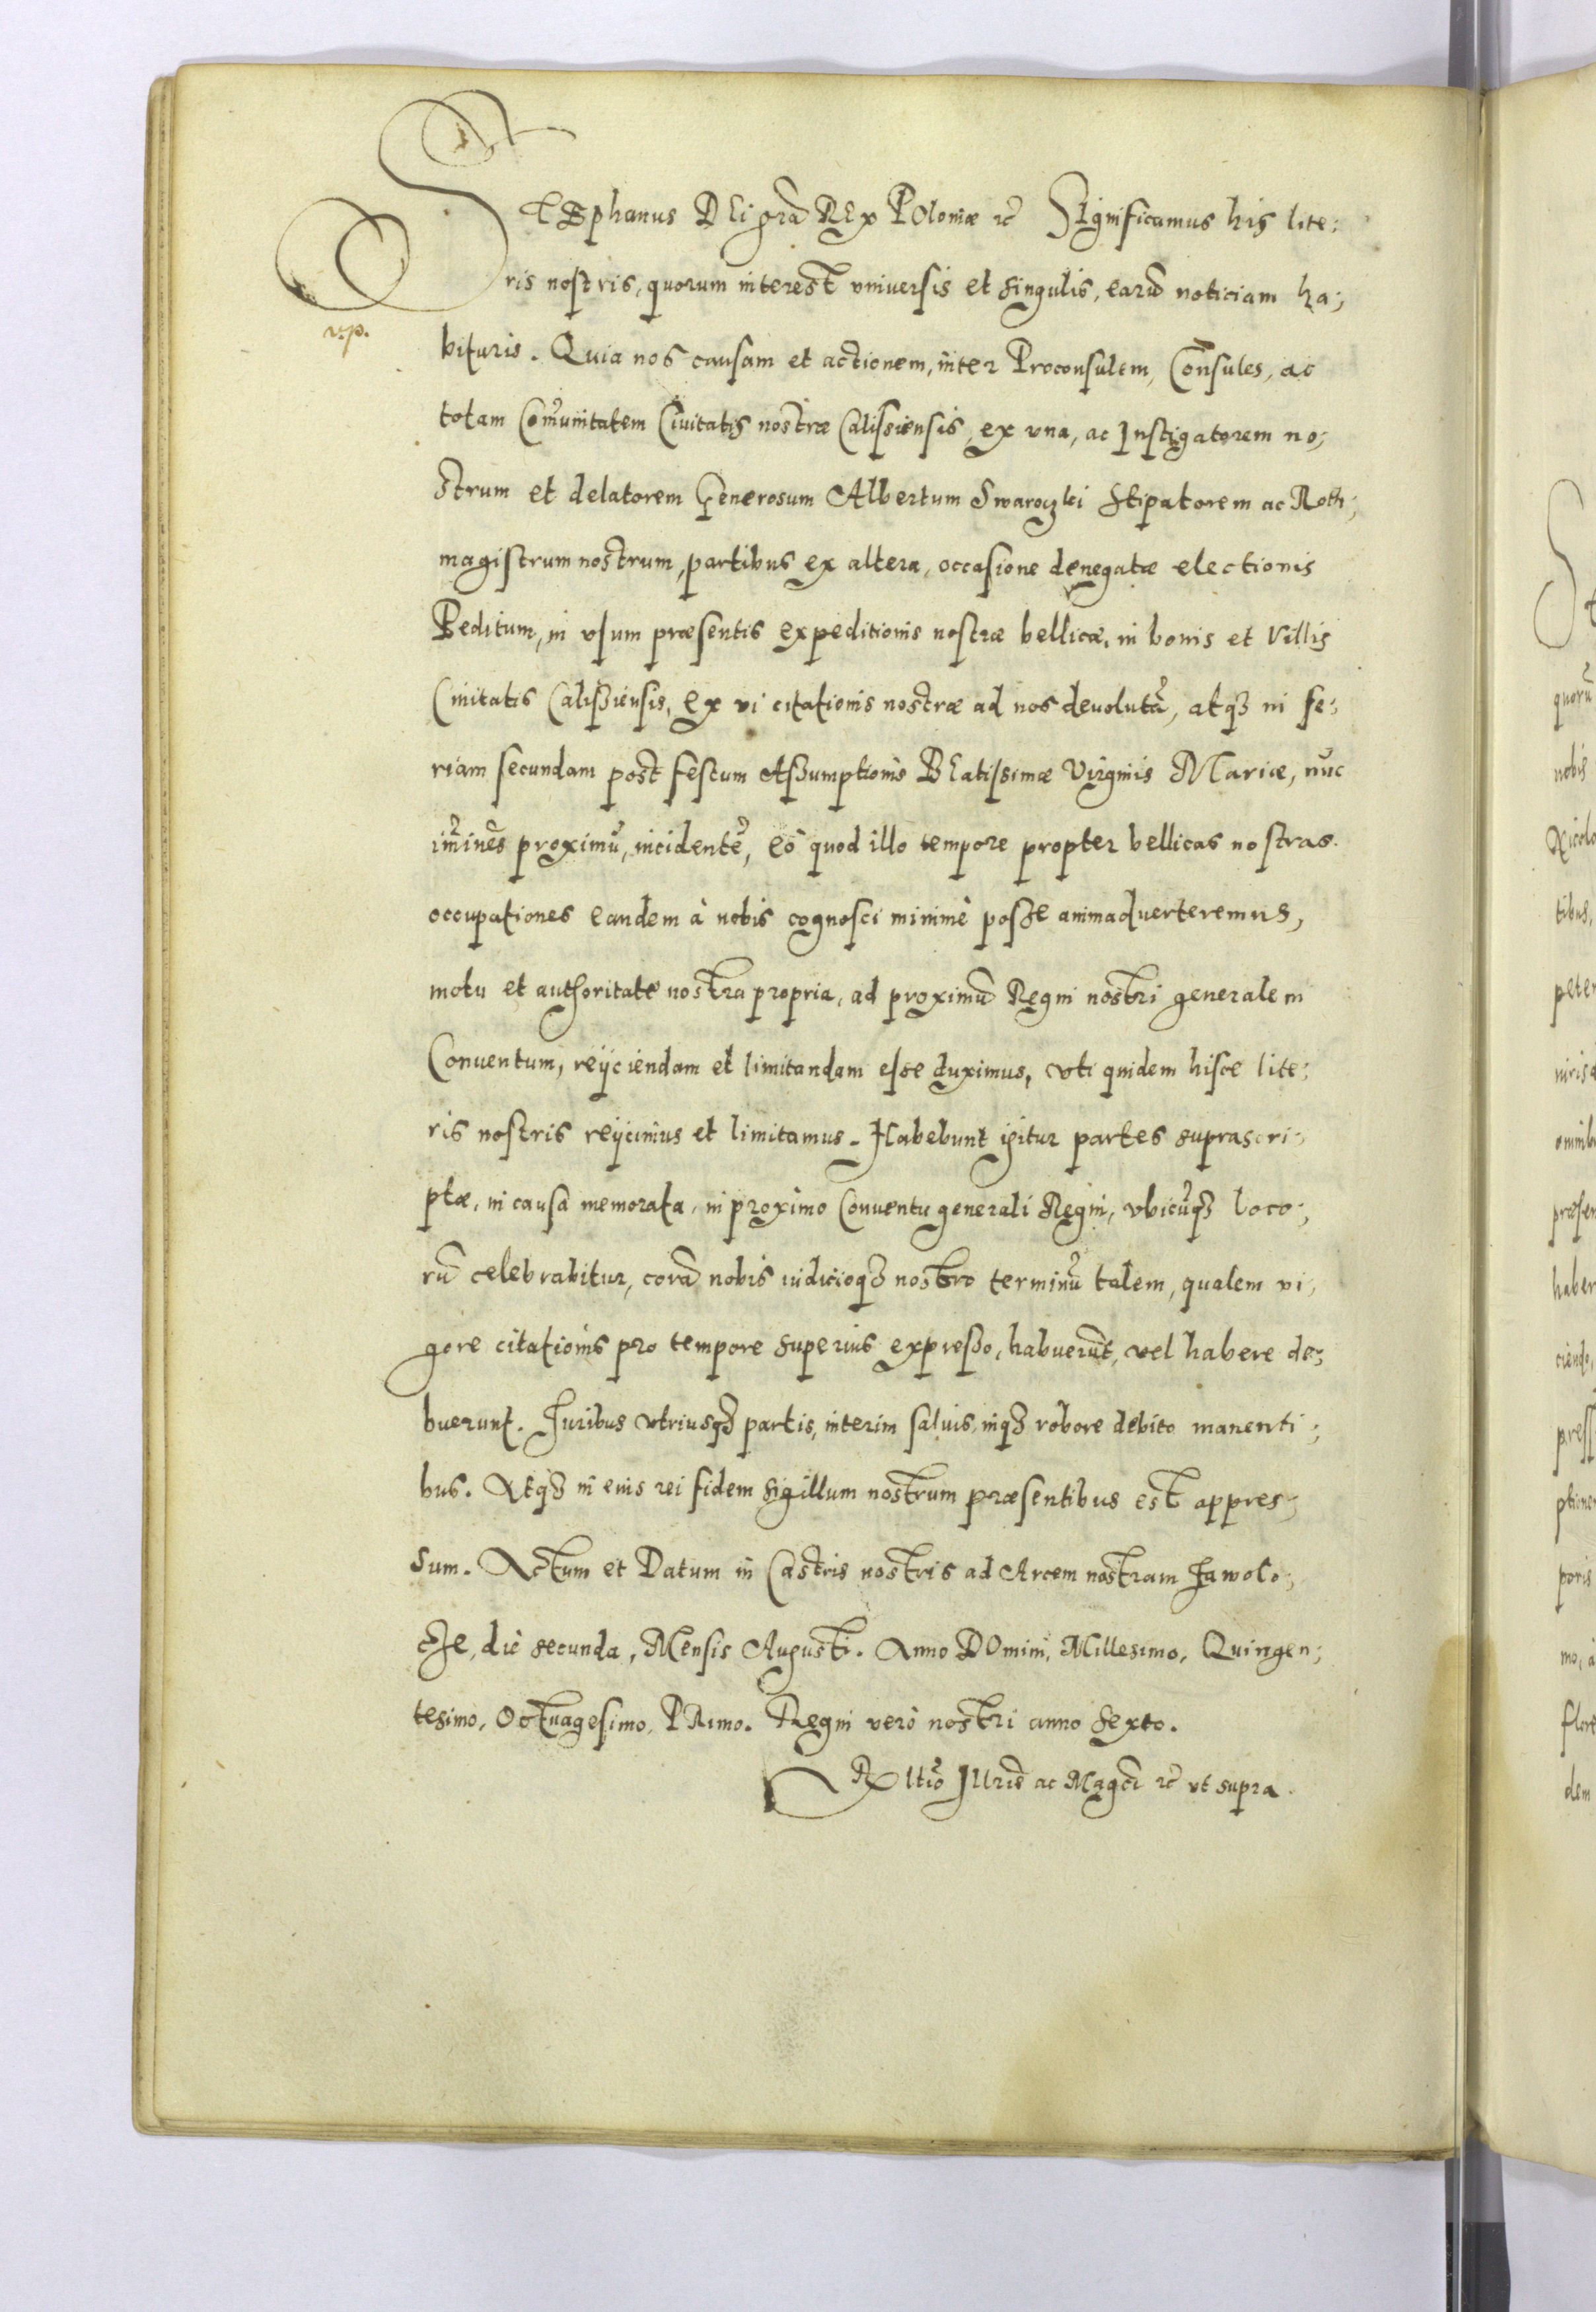 STEphanus DEi gra᷈ REx POloniæ ꝛc̃ SIgnificamus his lite;
ris nostris, quorum interest vniuersis et singulis, earu᷈ noticiam ha;
r.p.
bituris. Quia nos causam et actionem, inter Proconsulem, Consules, ac
totam Com̃unitatem Ciuitatis nostræ Calissiensis, ex vna, ac Instigatorem no;
strum et delatorem Generosum Albertum Swaroczki Stipatorem ac Roth;
magistrum nostrum, partibus ex altera, occasione denegatæ electionis
Peditum, in vsum præsentis expeditionis nostræ bellicæ, in bonis et Villis
Ciuitatis Calißiensis, Ex vi citationis nostræ ad nos deuolutã, atqꝫ in fe;
riam secundam post festum Aßumptionis BEatissimæ Virginis Mariæ, nũc
im̃inẽs proximũ, incidentẽ, eò quod illo tempore propter bellicas nostras
occupationes eandem à nobis cognosci minimè posse animaduerteremus,
motu et authoritate nostra propria, ad proximũ Regni nostri generalem
Conuentum, reijciendam et limitandam esse duximus, vti quidem hisce lite;
ris nostris reijcimus et limitamus. Habebunt igitur partes suprascri;
ptæ, in causa memorata, in proximo Conuentu generali Regni, vbicũqꝫ loco;
rũ celebrabitur, corã nobis iudicioqꝫ nostro terminũ talem, qualem vi;
gore citationis pro tempore superius expreßo, habuerũt, vel habere de;
buerunt. Iuribus vtriusqꝫ partis, interim saluis, inqꝫ robore debito manenti;
bus. Atqꝫ in eius rei fidem sigillum nostrum præsentibus est appres;
sum. Actum et Datum in Castris nostris ad Arcem nostram Zawolo;
cze, die secunda, Mensis Augusti. Anno DOmini, Millesimo, Quingen;
tesimo, Octuagesimo, PRimo. Regni verò nostri anno Sexto.
Rltio᷈ Illris᷈ ac Magci᷈ ꝛc̃ vt supra.
quorũ
nobis
Nicolo
tibus,
peter
omnib
præsen
haber
ciendo,
press
ptione
poris
mo, a
flore
dem